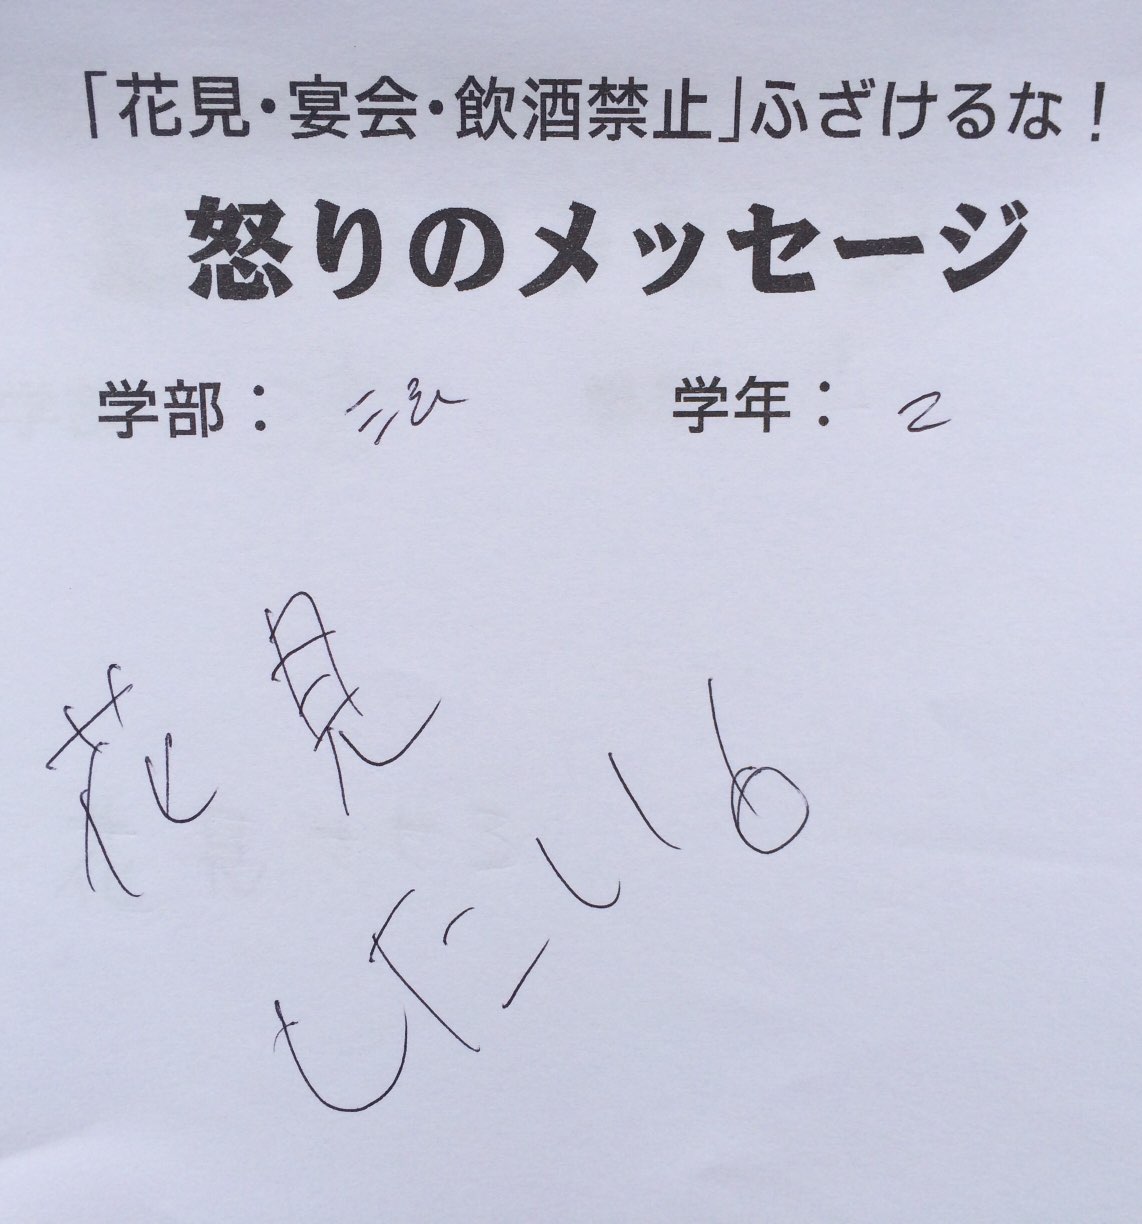 「花見・宴会・飲酒禁止」ふざけるな！
怒りのメッセージ
学部： 学年： 2
花見
したい